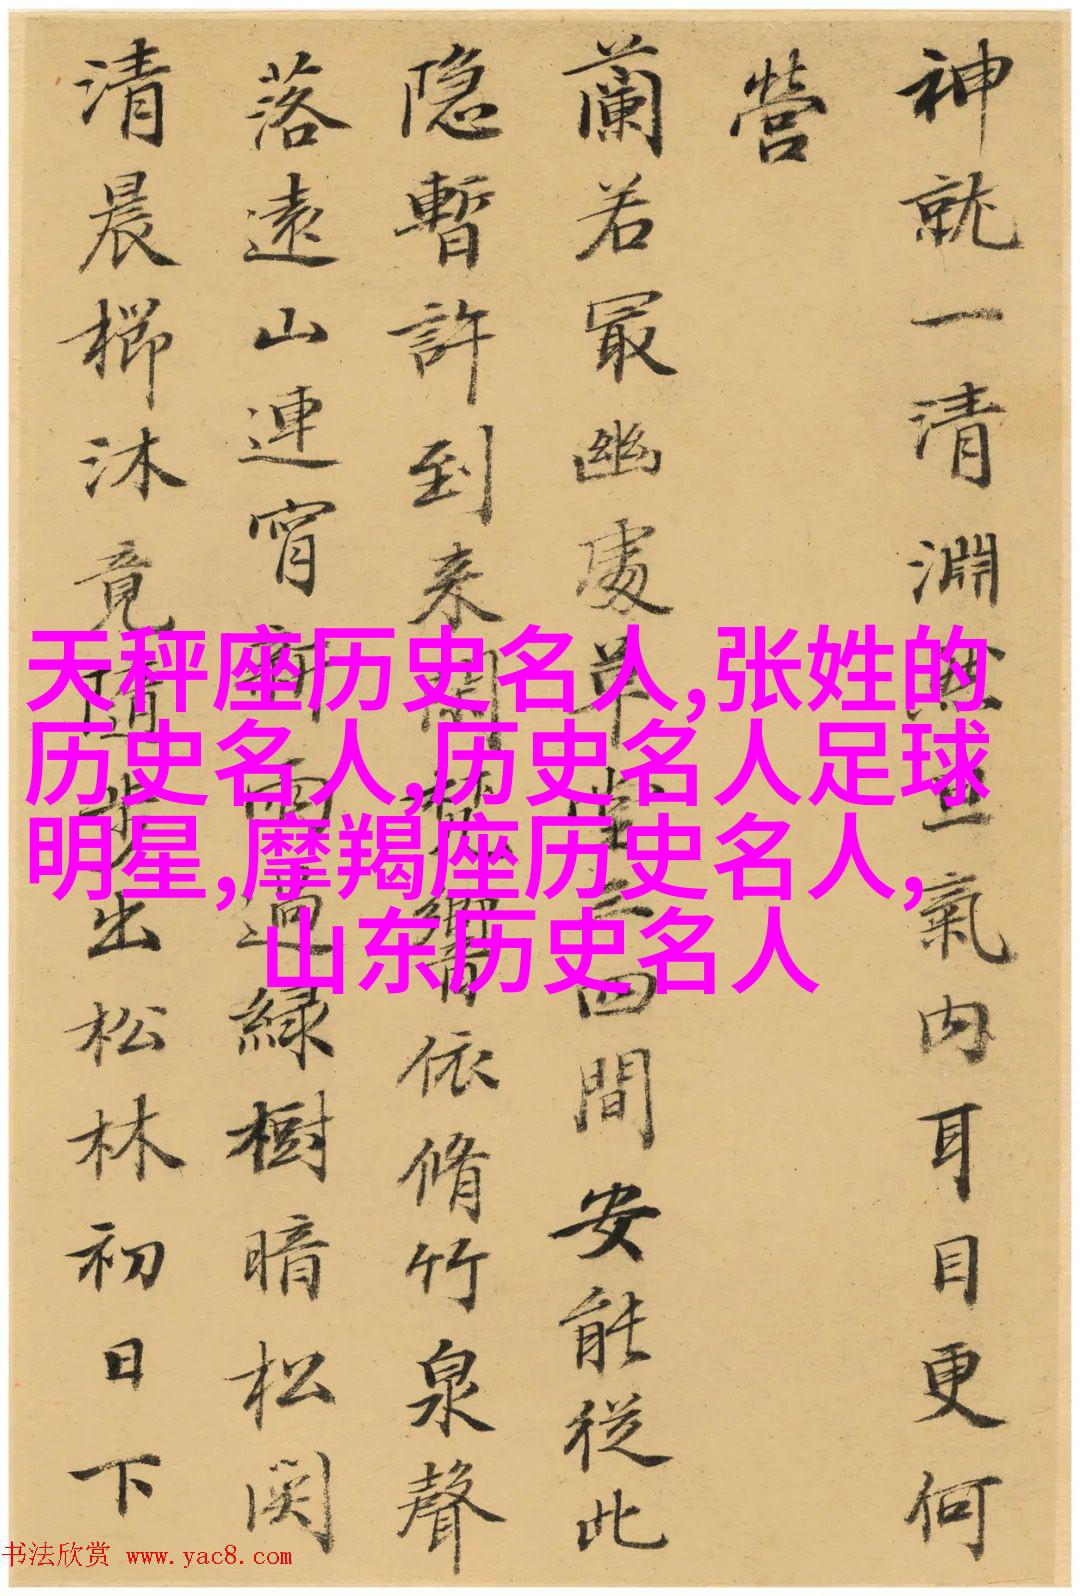 神就一清淵然氣内耳目更何
營
蘭若冣幽處草堂三四間安能從此
隐暫許到来聞梵響依脩竹泉聲
落遠山連宵新雨過緑樹暗松関
清晨櫛沐竟隨步出松林初日下
天秤座历史名人,张姓的
历史名人,历史名人足球
明星,摩羯座历史名人,
山东历史名人
书法欣赏 www.yac8.com